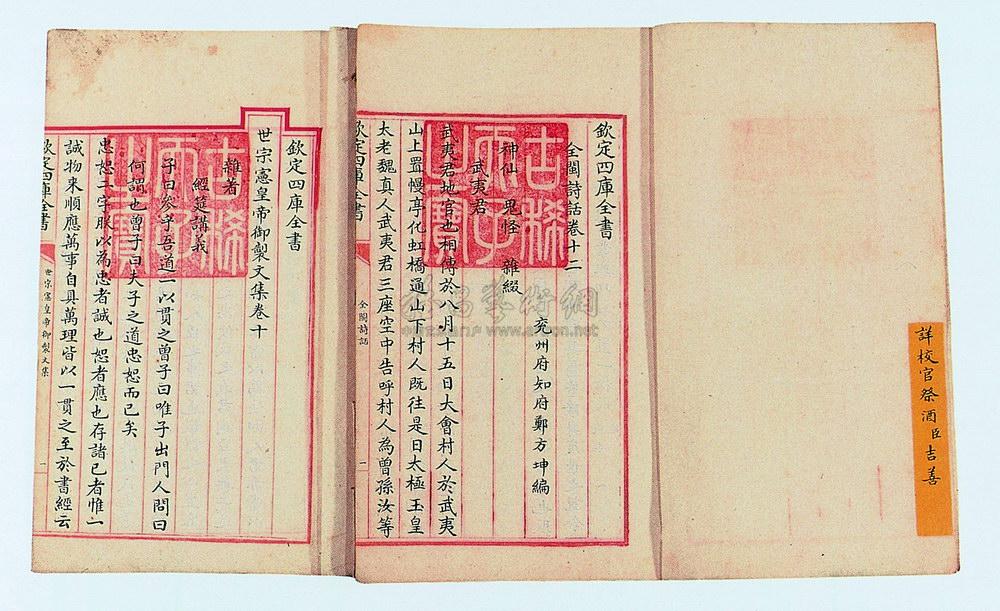 詳校官祭酒臣吉善
欽定四庫全書
全閩詩話卷十二
兖州府知府鄭方坤編
神仙 鬼怪 雜綴
武夷君
武夷君地官也相傳於八月十五日大會村人於武夷
山上置幔亭化虹橋通山下村人既往是日太極玉皇
太老魏真人武夷君三座空中告呼村人為曾孫汝等
欽定四庫全書
全閩詩話
一
古稀天子之寶
欽定四庫全書
世宗憲皇帝御製文集卷十
雜著
經筵講義
子曰參乎吾道一以貫之曾子曰唯子出門人問曰
何謂也曾子曰夫子之道忠恕而已矣
忠恕二字朕以為忠者誠也恕者應也存諸已者惟一
誠物來順應萬事自具萬理皆以一貫之至於書經云
欽定四庫全書
世宗憲皇帝御製文集
一
古稀天子之寶